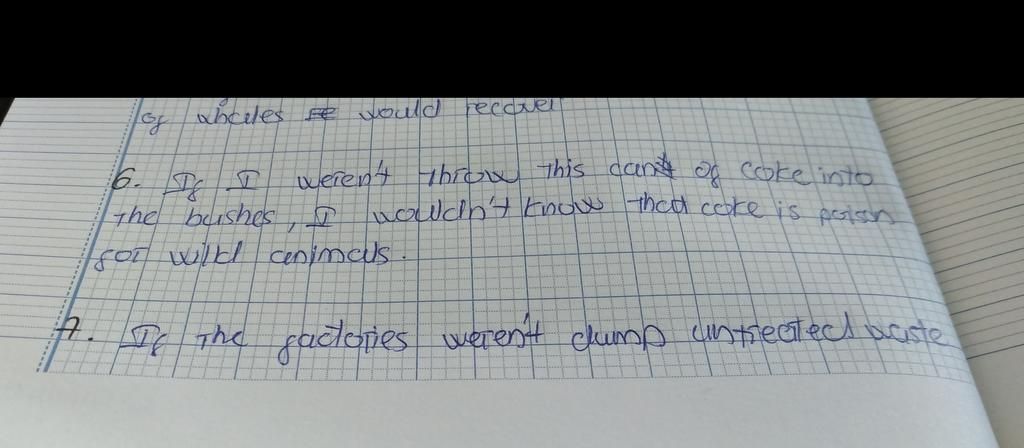 of whales would recover
6. If I weren't throw this can of coke into
the bushes, I wouldn't know that coke is poison
for wild animals.
7. If the factories weren't dump untreated waste